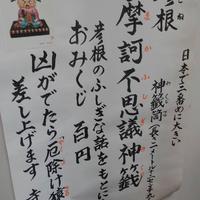 日本で三番めに大きい
神籤筒(長さ二メートル
彦根
摩訶不思議神籤
まかふしぎ
彦根のふしぎな話をもとに
おみくじ 百円
凶がでたら「厄除け
差し上げます